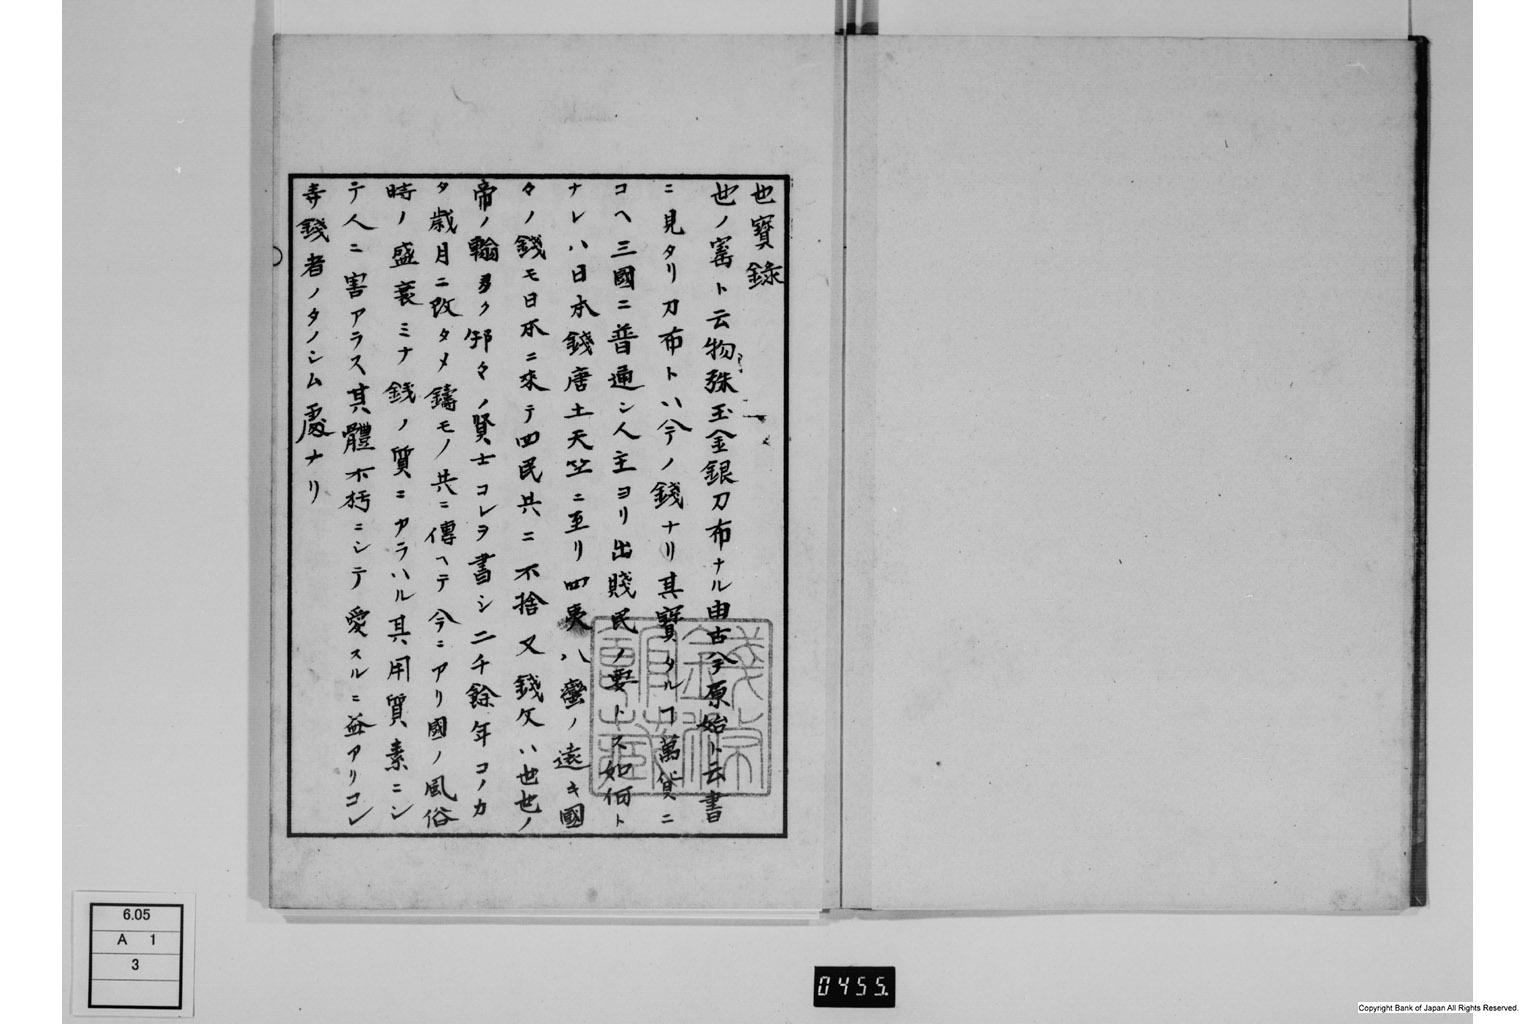 也寳錄
也ノ寳ト云物殊玉金銀刀布ナル由古今原始ト云書
ニ見タリ刀布トハ今ノ錢ナリ其寳タルコ萬貨ニ
コヘ三國ニ普通シ人主ヨリ出賤民ノ要トス如何ト
ナレハ日本錢唐土天竺ニ至リ四夷八蠻ノ遠キ國
々ノ錢モ日本ニ來テ四民共ニ不捨又錢文ハ世也ノ
帝ノ翰多ク邦々ノ賢士コレヲ書シ二千餘年コノカ
タ歳月ニ改タメ鑄モノ共ニ傳ヘテ今ニアリ國ノ風俗
時ノ盛衰ミナ錢ノ質ニアラハル其用質素ニシ
テ人ニ害アラス其體不朽ニシテ愛スルニ益アリコレ
寿錢者ノタノシム處ナリ
6.05
A 1
3
0455.
Copyright Bank of Japan All Rights Reserved.